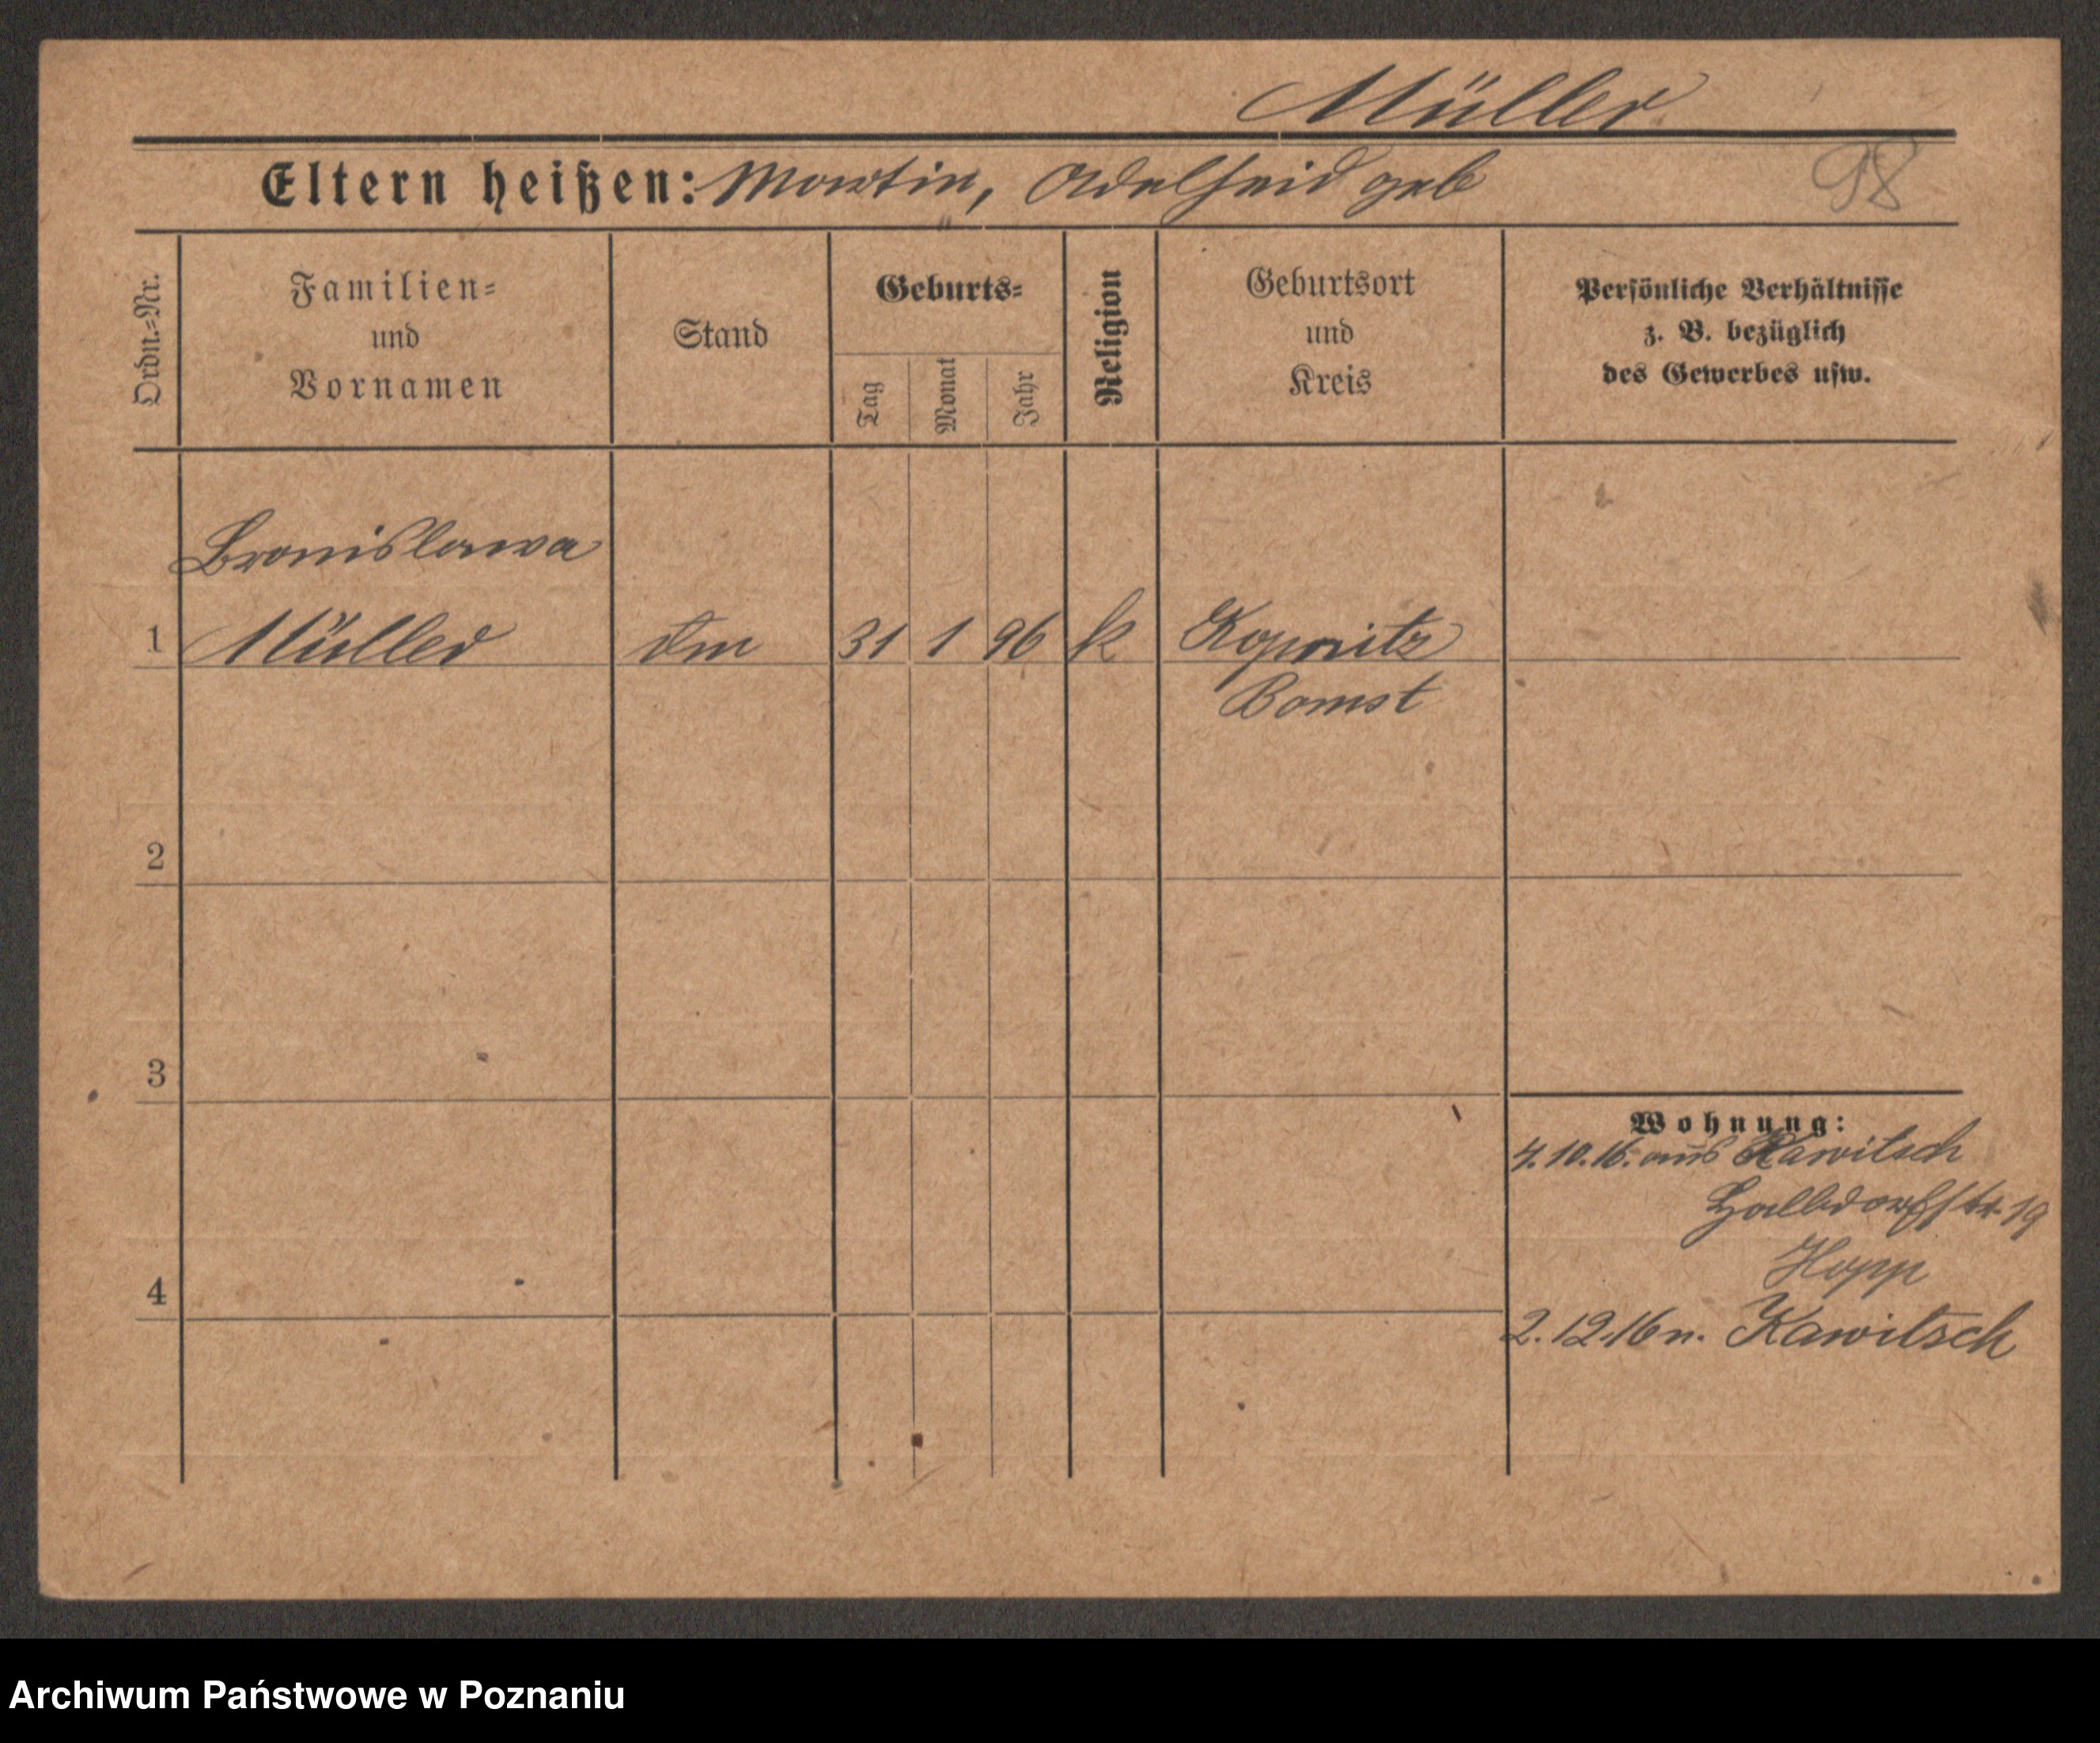 Müller
Eltern heißen: Martin, Adelheid geb
98
Ordn.-Nr.
Familien-
und
Vornamen
Stand
Geburts-
Tag
Monat
Jahr
Religion
Geburtsort
und
Kreis
Persönliche Verhältnisse
z. B. bezüglich
des Gewerbes usw.
Bronislawa
1 Müller 31 1 96 k Kopnitz
Bomst
2
3
Wohnung:
4.10.16. aus Rawitsch
Halbdorfstr. 19
Hopp
4
2.12.16 n. Rawitsch
Archiwum Państwowe w Poznaniu